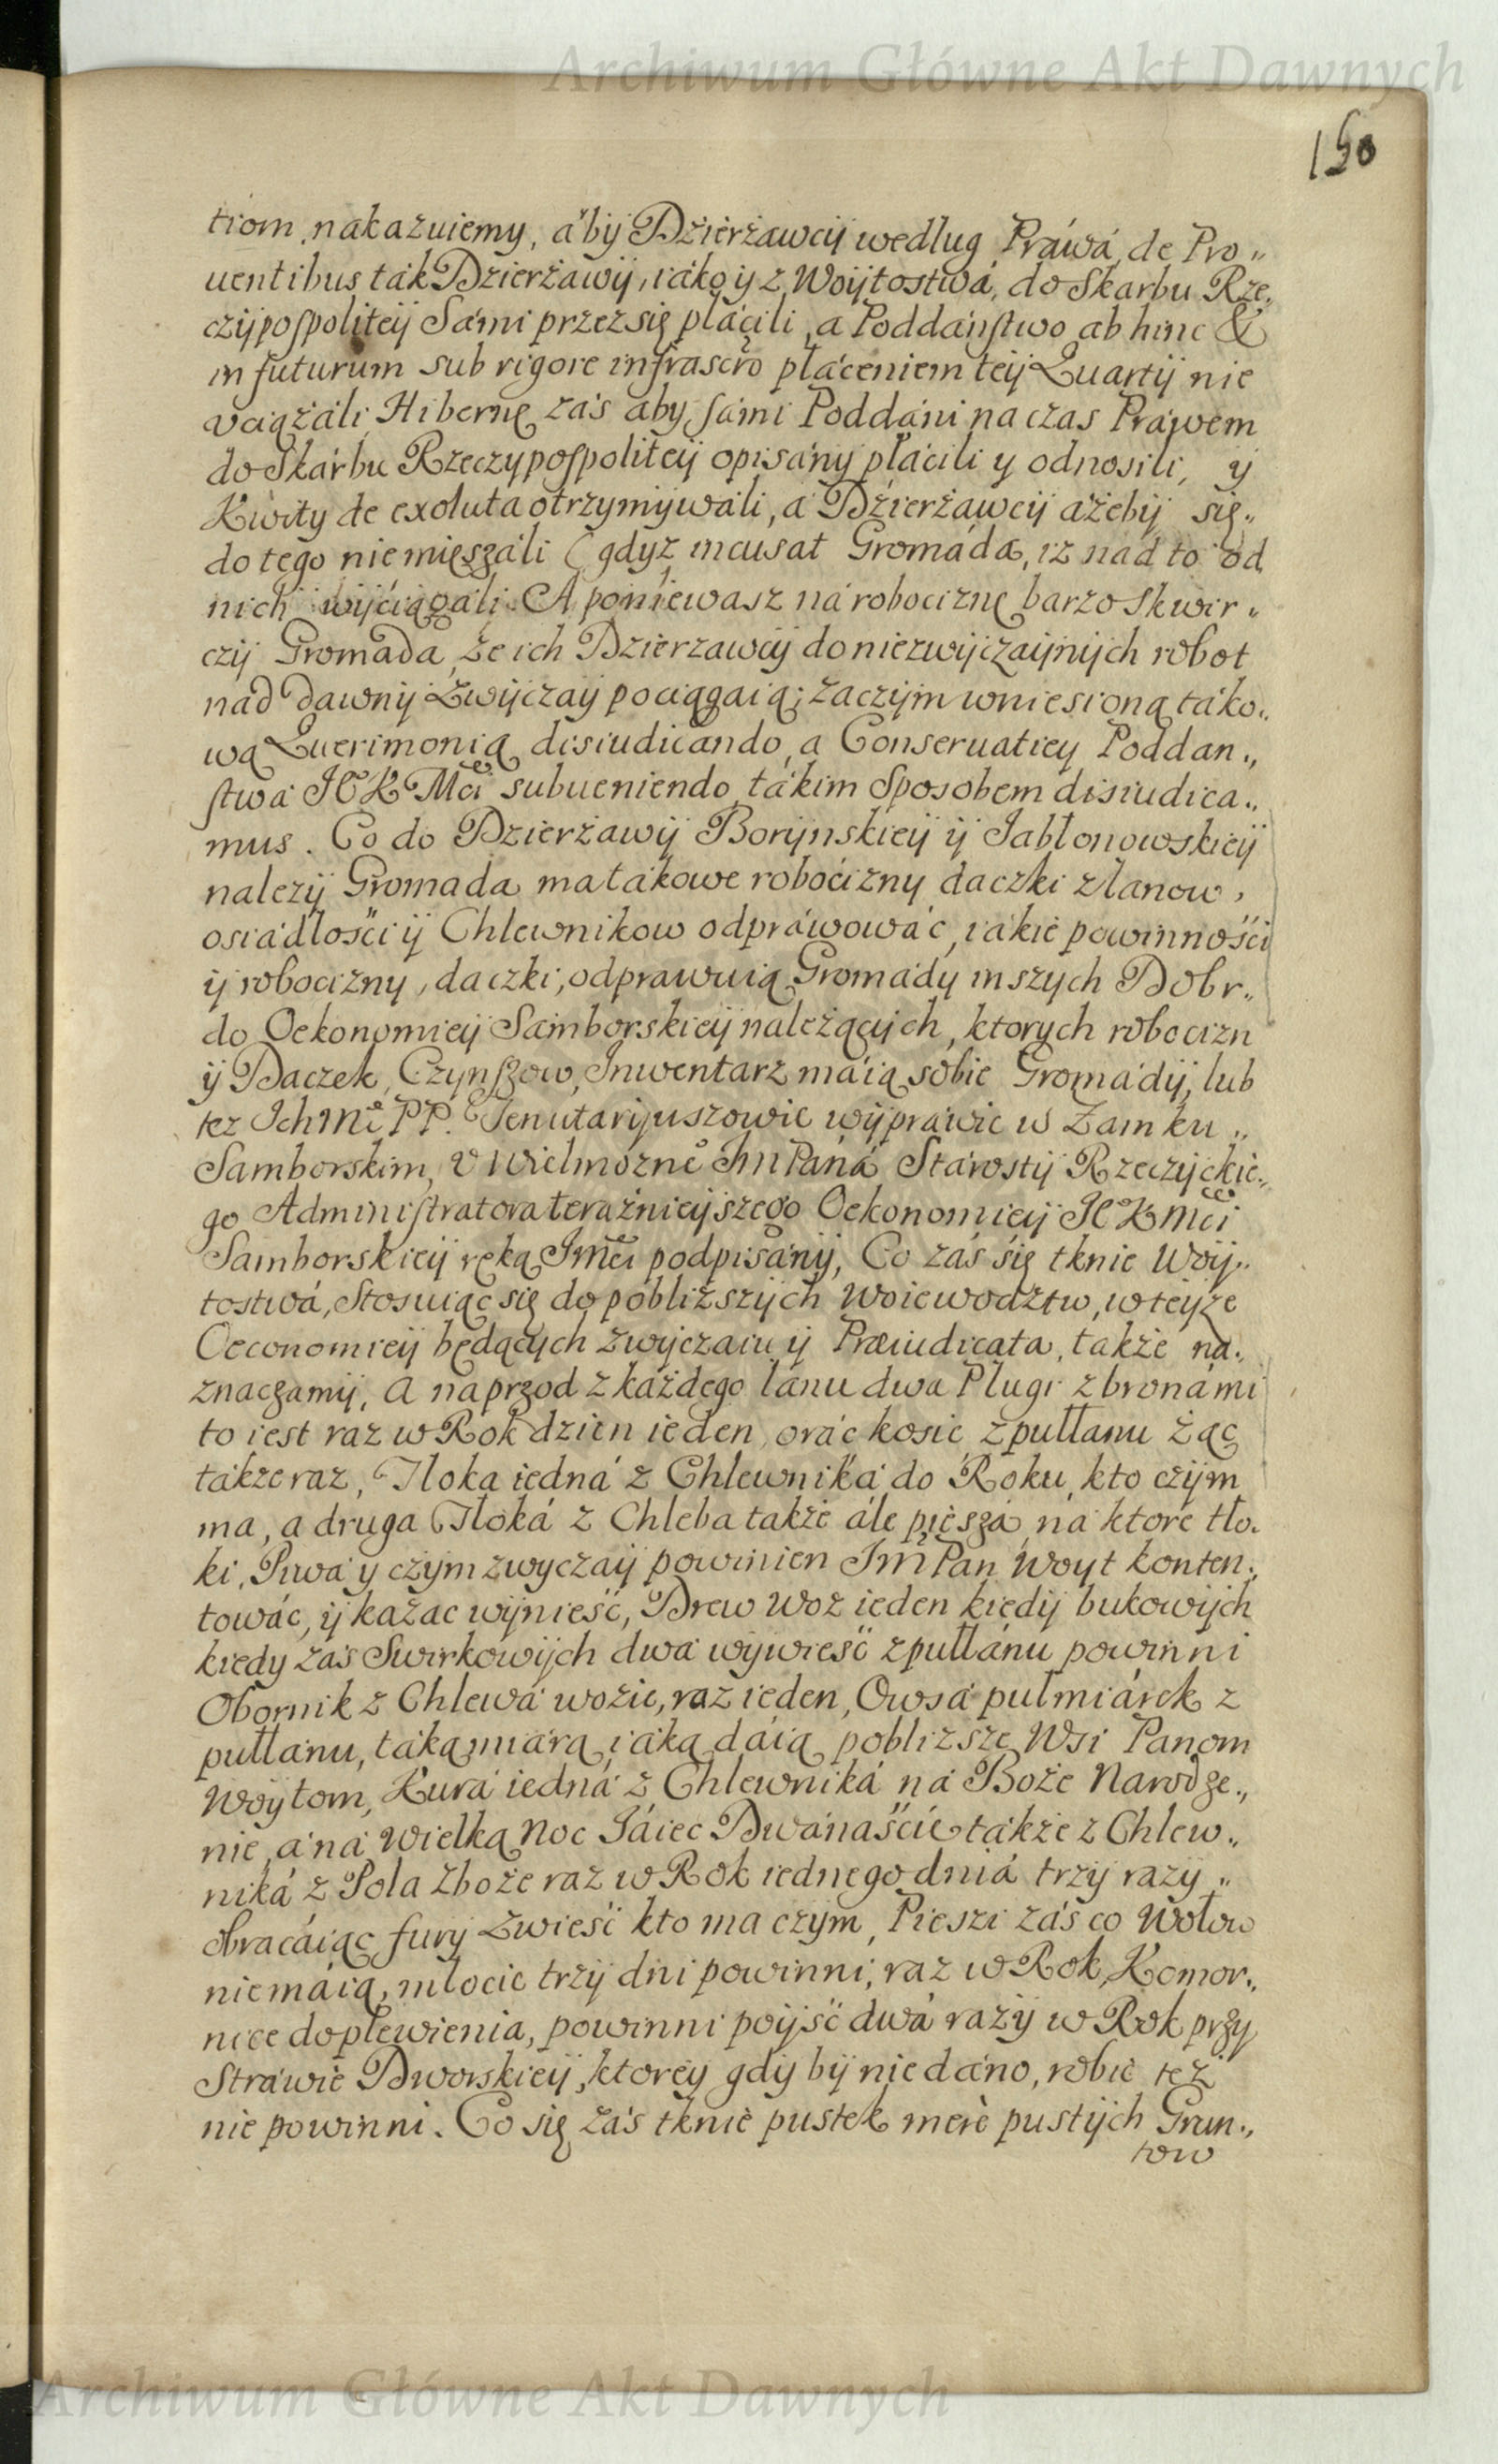 Archiwum Główne Akt Dawnych
150
tiom nakazuiemy, aby Dzierżawcy według Práwá, de Pro„
uentibus ták Dzierżawy, iáko y z Woytostwá, do Skarbu Rze„
czypospolitey Sámi przez się płácili, a Poddáństwo ab hinc &
in futurum sub rigore infrascro płáceniem tey Quarty nie
vciążáli, Hibernę zás aby sámi Poddáni na czas Práwem
do Skárbu Rzeczypospolitey opisány płácili y odnosili, y
Kwity de exoluta otrzymywáli, á Dzierżáwcy ażeby się„
do tego niemięszáli (gdyz incusat Gromádá, iz nad to od
nich wyciągáli. A poniewasz ná robociznę barzo skwir„
czy Gromada, że ich Dzierzawcy do niezwyczaynych robot
nad dawny zwyczay pociągaią; zaczym wniesioną táko„
wą Querimonią disiudicando, a Conseruatiey Poddan„
stwá JCKMci subueniendo, tákim Sposobem disiudica„
mus. Co do Dzierżawy Borynskiey y Jabłonowskiey
nalezy Gromada ma tákowe robocizny daczki z łanow,
osiádłości y Chlewnikow odpráwowáć, iákie powinności
y robocizny, daczki, odprawuią Gromády inszych Dobr„
do Oekonomiey Sámborskiey należących, ktorych robocizn
y Daczek, Czynszow, Inwentarz máią sobie Gromády, lub
tez Ichmć PP. Tenutaryuszowie wyprawić w Zamku„
Samborskim, v Wielmożnego Jm Páná Stárosty Rzeczyckie„
go Administratora teraznieyszego Oekonomiey JCKMci
Samborskiey ręką Jmci podpisány, Co zás się tknie Woy„
tostwá, Stosuiąc się do pobliższych Woiewodztw, w teyże
Oeconomiey będących zwyczaiu y Præiudicata, także ná„
znaczamy, A naprzod z káżdego łanu dwa Plugi z bronámi
to iest raz w Rok dzien ieden, oráć kosić, z pułłanu żąć
tákże raz, Tłoka iedná z Chlewniká do Roku, kto czym
ma, a druga Tłoká z Chleba także ále pieszá, ná ktore tło„
ki, Piwá y czym zwyczay powinien Jm Pan Woyt konten„
towác, y kazác wynieść, Drew woz ieden kiedy bukowych
kiedy zás Swirkowych dwá wywieść z pułłánu powinni
Obornik z Chlewá wozić, raz ieden, Owsá pułmiárek z
pułłanu, táką miárą iáką dáią pobliższe Wsi Panom
Woytom, Kurá iedná z Chlewniká ná Boże Narodze„
nie, á ná Wielką Noc Jáiec Dwánáście tákże z Chlew„
niká z Pola zboże raz w Rok iednego dniá trzy razy„
obracáiąc fury zwieść kto ma czym, Pieszi zás co Wołow
niemáią, młocić trzy dni powinni, raz w Rok, Komor„
nice do plewienia, powinni poyść dwá razy w Rok przy
Stráwie Dworskiey, ktorey gdy by nie dáno, robić też
nie powinni. Co się zás tknie pustek mere pustych Grun„
tow
Archiwum Główne Akt Dawnych